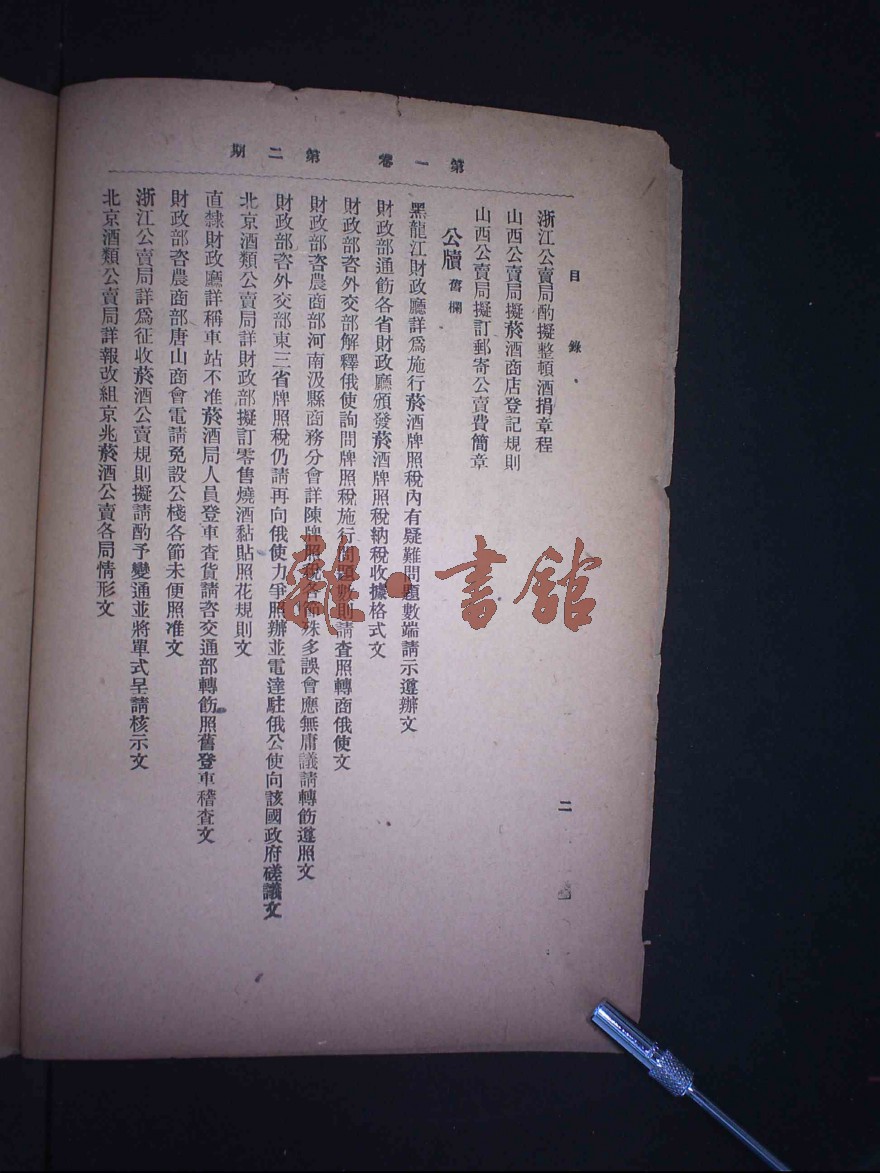 第一卷　第二期
目錄
二
浙江公賣局酌擬整頓酒捐章程
山西公賣局擬菸酒商店登記規則
山西公賣局擬訂郵寄公賣費簡章
公牘 舊欄
黑龍江財政廳詳爲施行菸酒牌照稅內有疑難問題數端請示遵辦文
財政部通飭各省財政廳頒發菸酒牌照稅納稅收據格式文
財政部咨外交部解釋俄使詢問牌照稅施行問題數則請查照轉商俄使文
財政部咨農商部河南汲縣商務分會詳陳牌照稅各節殊多誤會應無庸議請轉飭遵照文
財政部咨外交部東三省牌照稅仍請再向俄使力爭照辦並電達駐俄公使向該國政府磋議文
北京酒類公賣局詳財政部擬訂零售燒酒黏貼照花規則文
直隸財政廳詳稱車站不准菸酒局人員登車查貨請咨交通部轉飭照舊登車稽查文
財政部咨農商部唐山商會電請免設公棧各節未便照准文
浙江公賣局詳爲征收菸酒公賣規則擬請酌予變通並將單式呈請核示文
北京酒類公賣局詳報改組京兆菸酒公賣各局情形文
雜·書館